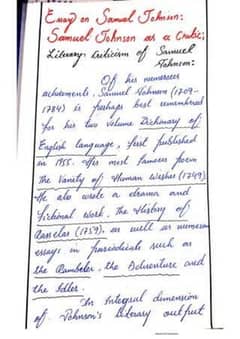 Essay on Samuel Johnson:
Samuel Johnson as a Critic;
Literary Criticism of Samuel
Johnson:
Of his numerous
achievements, Samuel Johnson (1709-
1784) is perhaps best remembered
for his two volume Dictionary of
English language, first published
in 1955. His most famous poem
the Vanity of Human Wishes (1749)
He also wrote a drama and
fictional work, the History of
Rasselas (1759), as well as numerous
essays in periodicals such as
the Rambler, the Adventure and
the Idler.
An Integral dimension
of Johnson's literary output